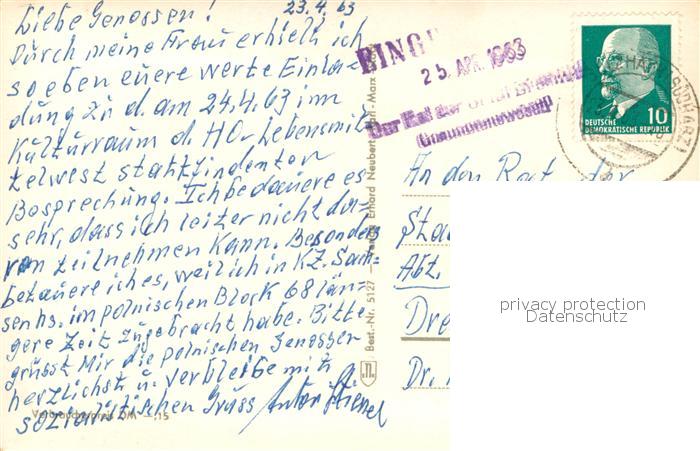 23.4.63
Liebe Genossen!
Durch meine Frau erhielt ich
soeben euere werte Einla-
dung zu d. am 24.4.63 im
Kulturraum d. HO-Lebensmit-
telwest stattfindenten
Bosprechung. Ich bedauere es
sehr, dass ich leiter nicht da-
ran teilnehmen kann. Besonders
betauere ich es, weil ich in KZ. Sach-
senhs. im polnischen Block 68 län-
gere Zeit zugebracht habe. Bitte
grüsst Mir die polnischen Genossen
herzlichst u. verbleibe mit
sozialistischen Gruss Anton
Verbraucherpreis DM —,15
Best.-Nr. 5127 Erhard Neubert Karl-Marx-
EING
25. APR. 1963
Der Rat der
DEUTSCHE
DEMOKRATISCHE REPUBLIK
10
An den Rat der
Sta
Abt.
Dre
Dr.
privacy protection
Datenschutz